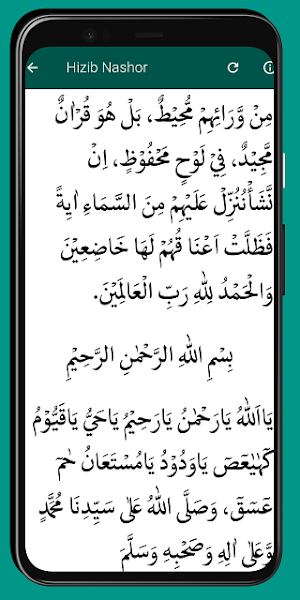 Hizib Nashor
مِنْ وَّرَائِهِمْ مُّحِيْطٌ، بَلْ هُوَ قُرْاٰنٌ
مَّجِيْدٌ، فِيْ لَوْحٍ مَحْفُوْظٍ، اِنْ
نَّشَأْنُنَزِّلْ عَلَيْهِمْ مِنَ السَّمَاءِ اٰيَةً
فَظَلَّتْ اَعْنَا قُهُمْ لَهَا خَاضِعِيْنَ
وَالْحَمْدُ لِلّٰهِ رَبِّ الْعَالَمِيْنَ.
بِسْمِ اللهِ الرَّحْمٰنِ الرَّحِيْمِ
يَااَللهُ يَارَحْمٰنُ يَارَحِيْمُ يَاحَيُّ يَاقَيُّوْمُ
كٓهٰيٰعٓصٓ يَاوَدُوْدُ يَامُسْتَعَانُ حٰمٓ
عٓسٓقٓ، وَصَلَّى اللهُ عَلٰى سَيِّدِنَا مُحَمَّدٍ
وَّعَلٰى اٰلِهٖ وَصَحْبِهٖ وَسَلَّمَ